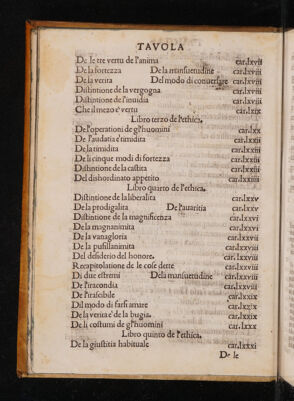 TAVOLA
De le tre vertu de l'anima car.lxvii
De la fortezza De la mansuetudine car.lxviii
De la verita Del modo di conuersare car.lxviii
Distintione de la vergogna car.lxviii
Distintione de l'inuidia car.lxviii
Che il mezo e' vertu car.lxix
Libro terzo de l'ethica.
De l'operationi de gl'huomini car.lxx
De l'audatia e timidita car.lxxii
De la timidita car.lxxii
De li cinque modi di fortezza car.lxxiii
Distintione de la castita car.lxxiii
Del dishordinato appetito car.lxxiiii
Libro quarto de l'ethica.
Distintione de la liberalita car.lxxv
De la prodigalita De l'auaritia car.lxxv
Distintione de la magnificenza car.lxxvi
De la magnanimita car.lxxvi
De la vanagloria car.lxxviii
De la pusillanimita car.lxxviii
Del desiderio del honore. car.lxxviii
Recapitolatione de le cose dette car.lxxviii
Di due estremi De la mansuetudine car.lxxviii
De l'iracondia car.lxxviii
De l'irascibile car.lxxix
Dil modo di farsi amare car.lxxix
De la verita e' de la bugia. car.lxxix
De li costumi de gl'huomini car.lxxx
Libro quinto de l'ethica.
De la giustitia habituale car.lxxxi
De le